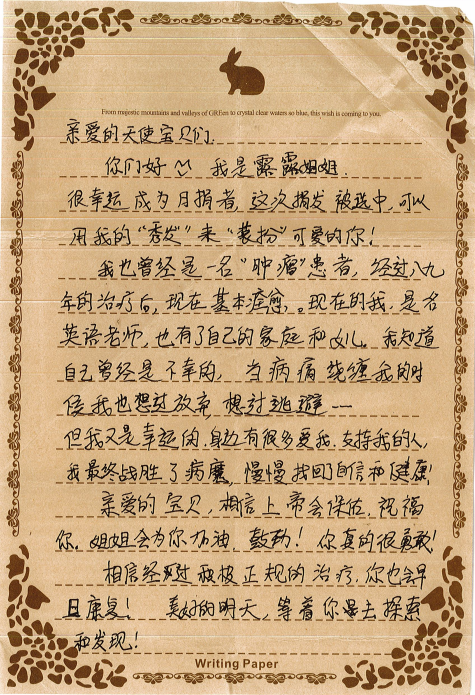 From majestic mountains and valleys of GREen to crystal clear waters so blue, this wish is coming to you.
亲爱的天使宝贝们.
你们好 我是露露姐姐.
很幸运成为月捐者, 这次捐发被选中, 可以
用我的“秀发”来“装扮”可爱的你!
我也曾经是一名“肿瘤”患者, 经过八九
年的治疗后, 现在基本痊愈。现在的我, 是名
英语老师, 也有了自己的家庭和女儿。我知道
自己曾经是不幸的, 当病痛缠我的时
候我也想过放弃, 想过逃避——
但我又是幸运的. 身边有很多爱我. 支持我的人,
我最终战胜了病魔, 慢慢找回了自信和健康!
亲爱的宝贝, 相信上帝会保佑. 祝福
你. 姐姐会为你加油. 鼓劲! 你真的很勇敢!
相信经过积极正规的治疗, 你也会早
日康复! 美好的明天, 等着你去探索
和发现!
Writing Paper